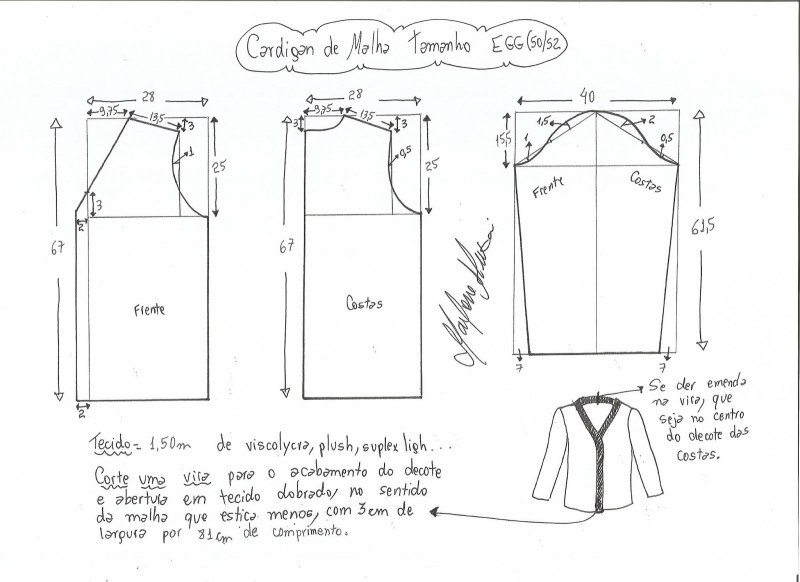 Cardigan de Malha Tamanho EGG (50/52
28
9,75
13,5
3
1
25
67
3
2
2
Frente
28
9,75
13,5
3
3
0,5
25
67
Costas
40
15,5
1,5
2
1
0,5
Frente
Costas
61,5
7
7
Se der emenda
na vira, que
seja no centro
do decote das
costas.
Tecido = 1,50m de viscolycra, plush, suplex ligh...
Corte uma vira para o acabamento do decote
e abertura em tecido dobrado, no sentido
da malha que estica menos, com 3cm de
largura por 81cm de comprimento.